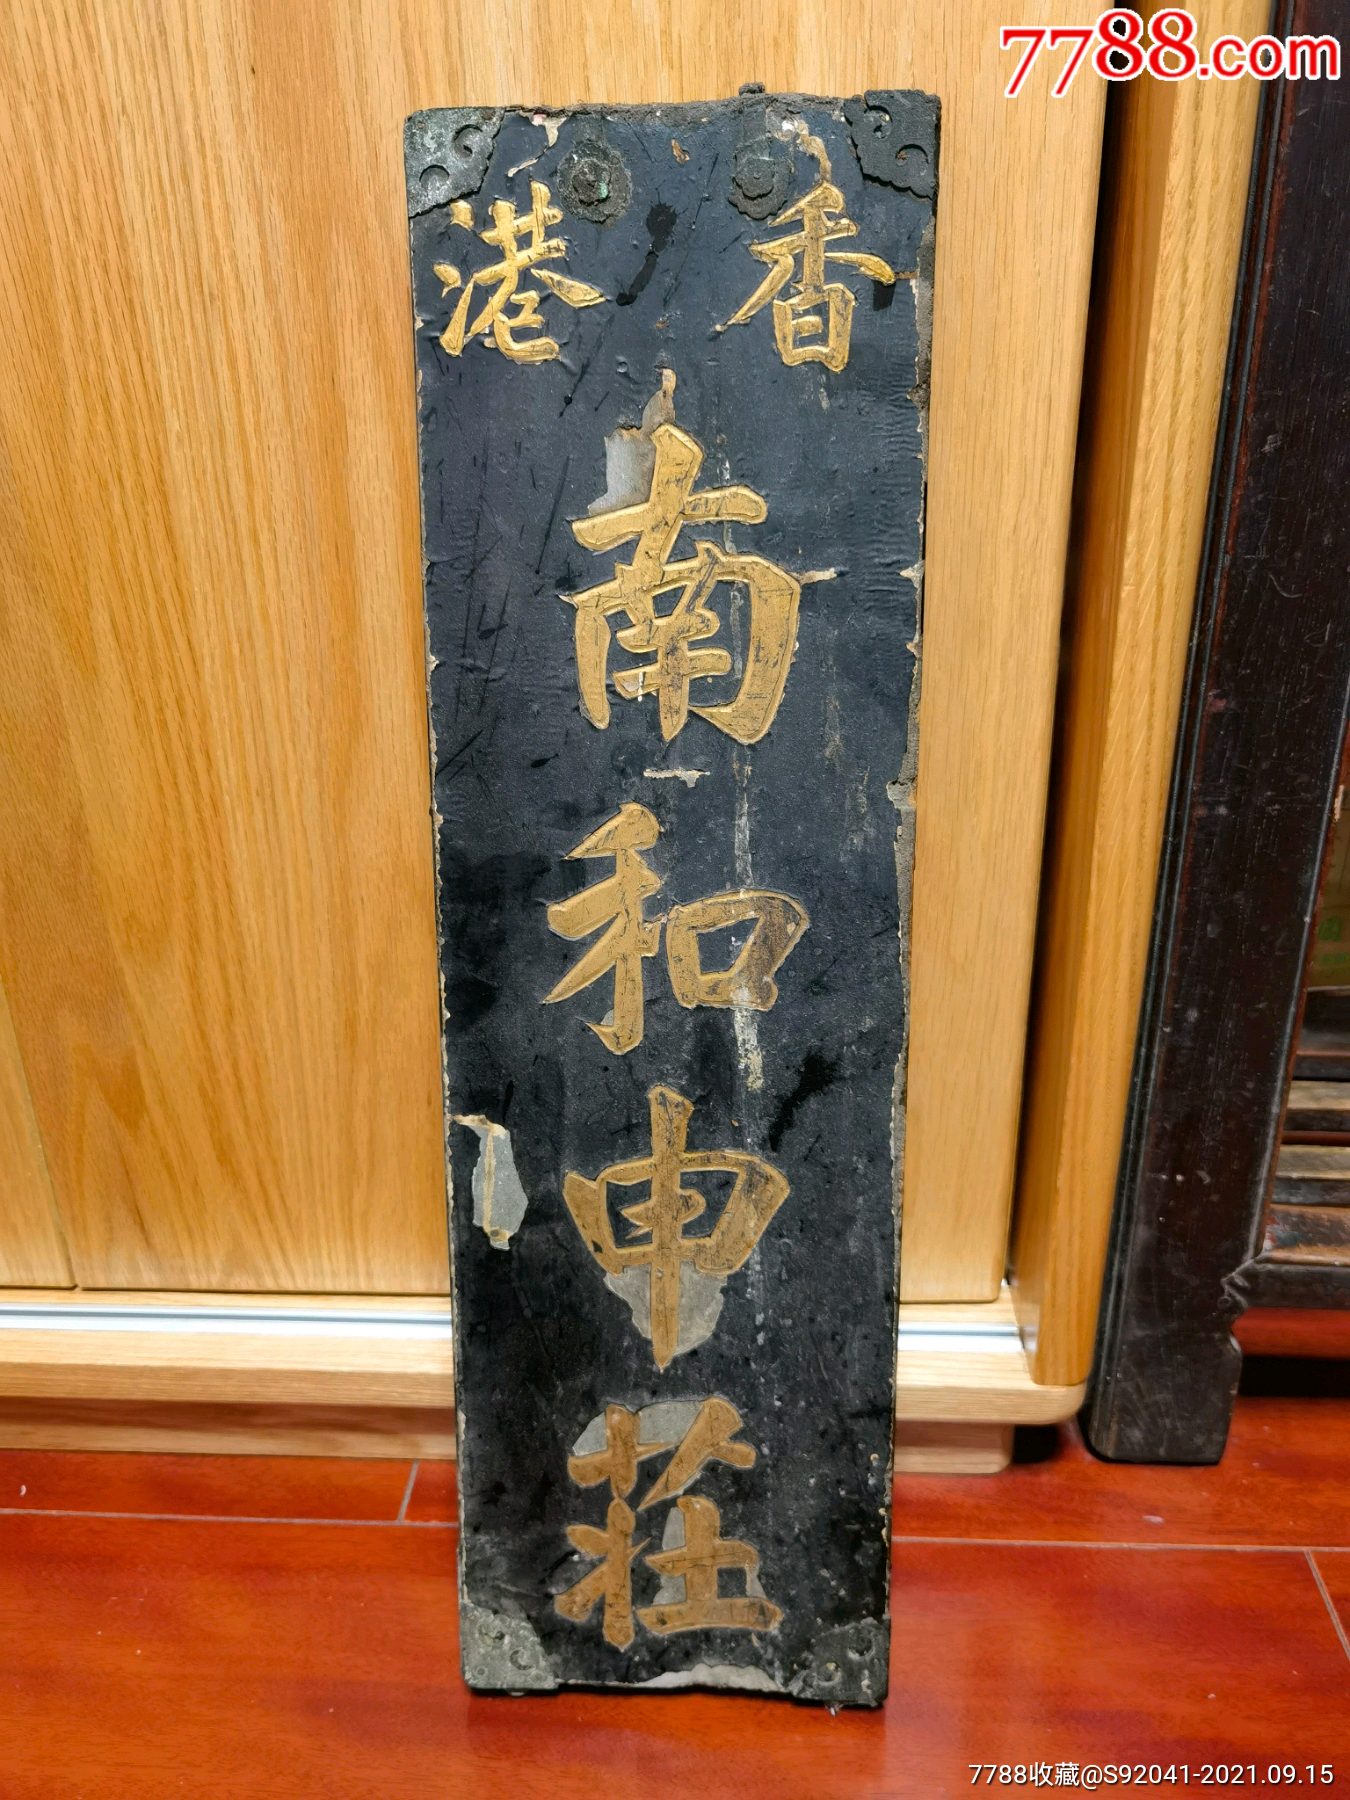 7788.com
香港
南和申莊
7788收藏@S92041-2021.09.15